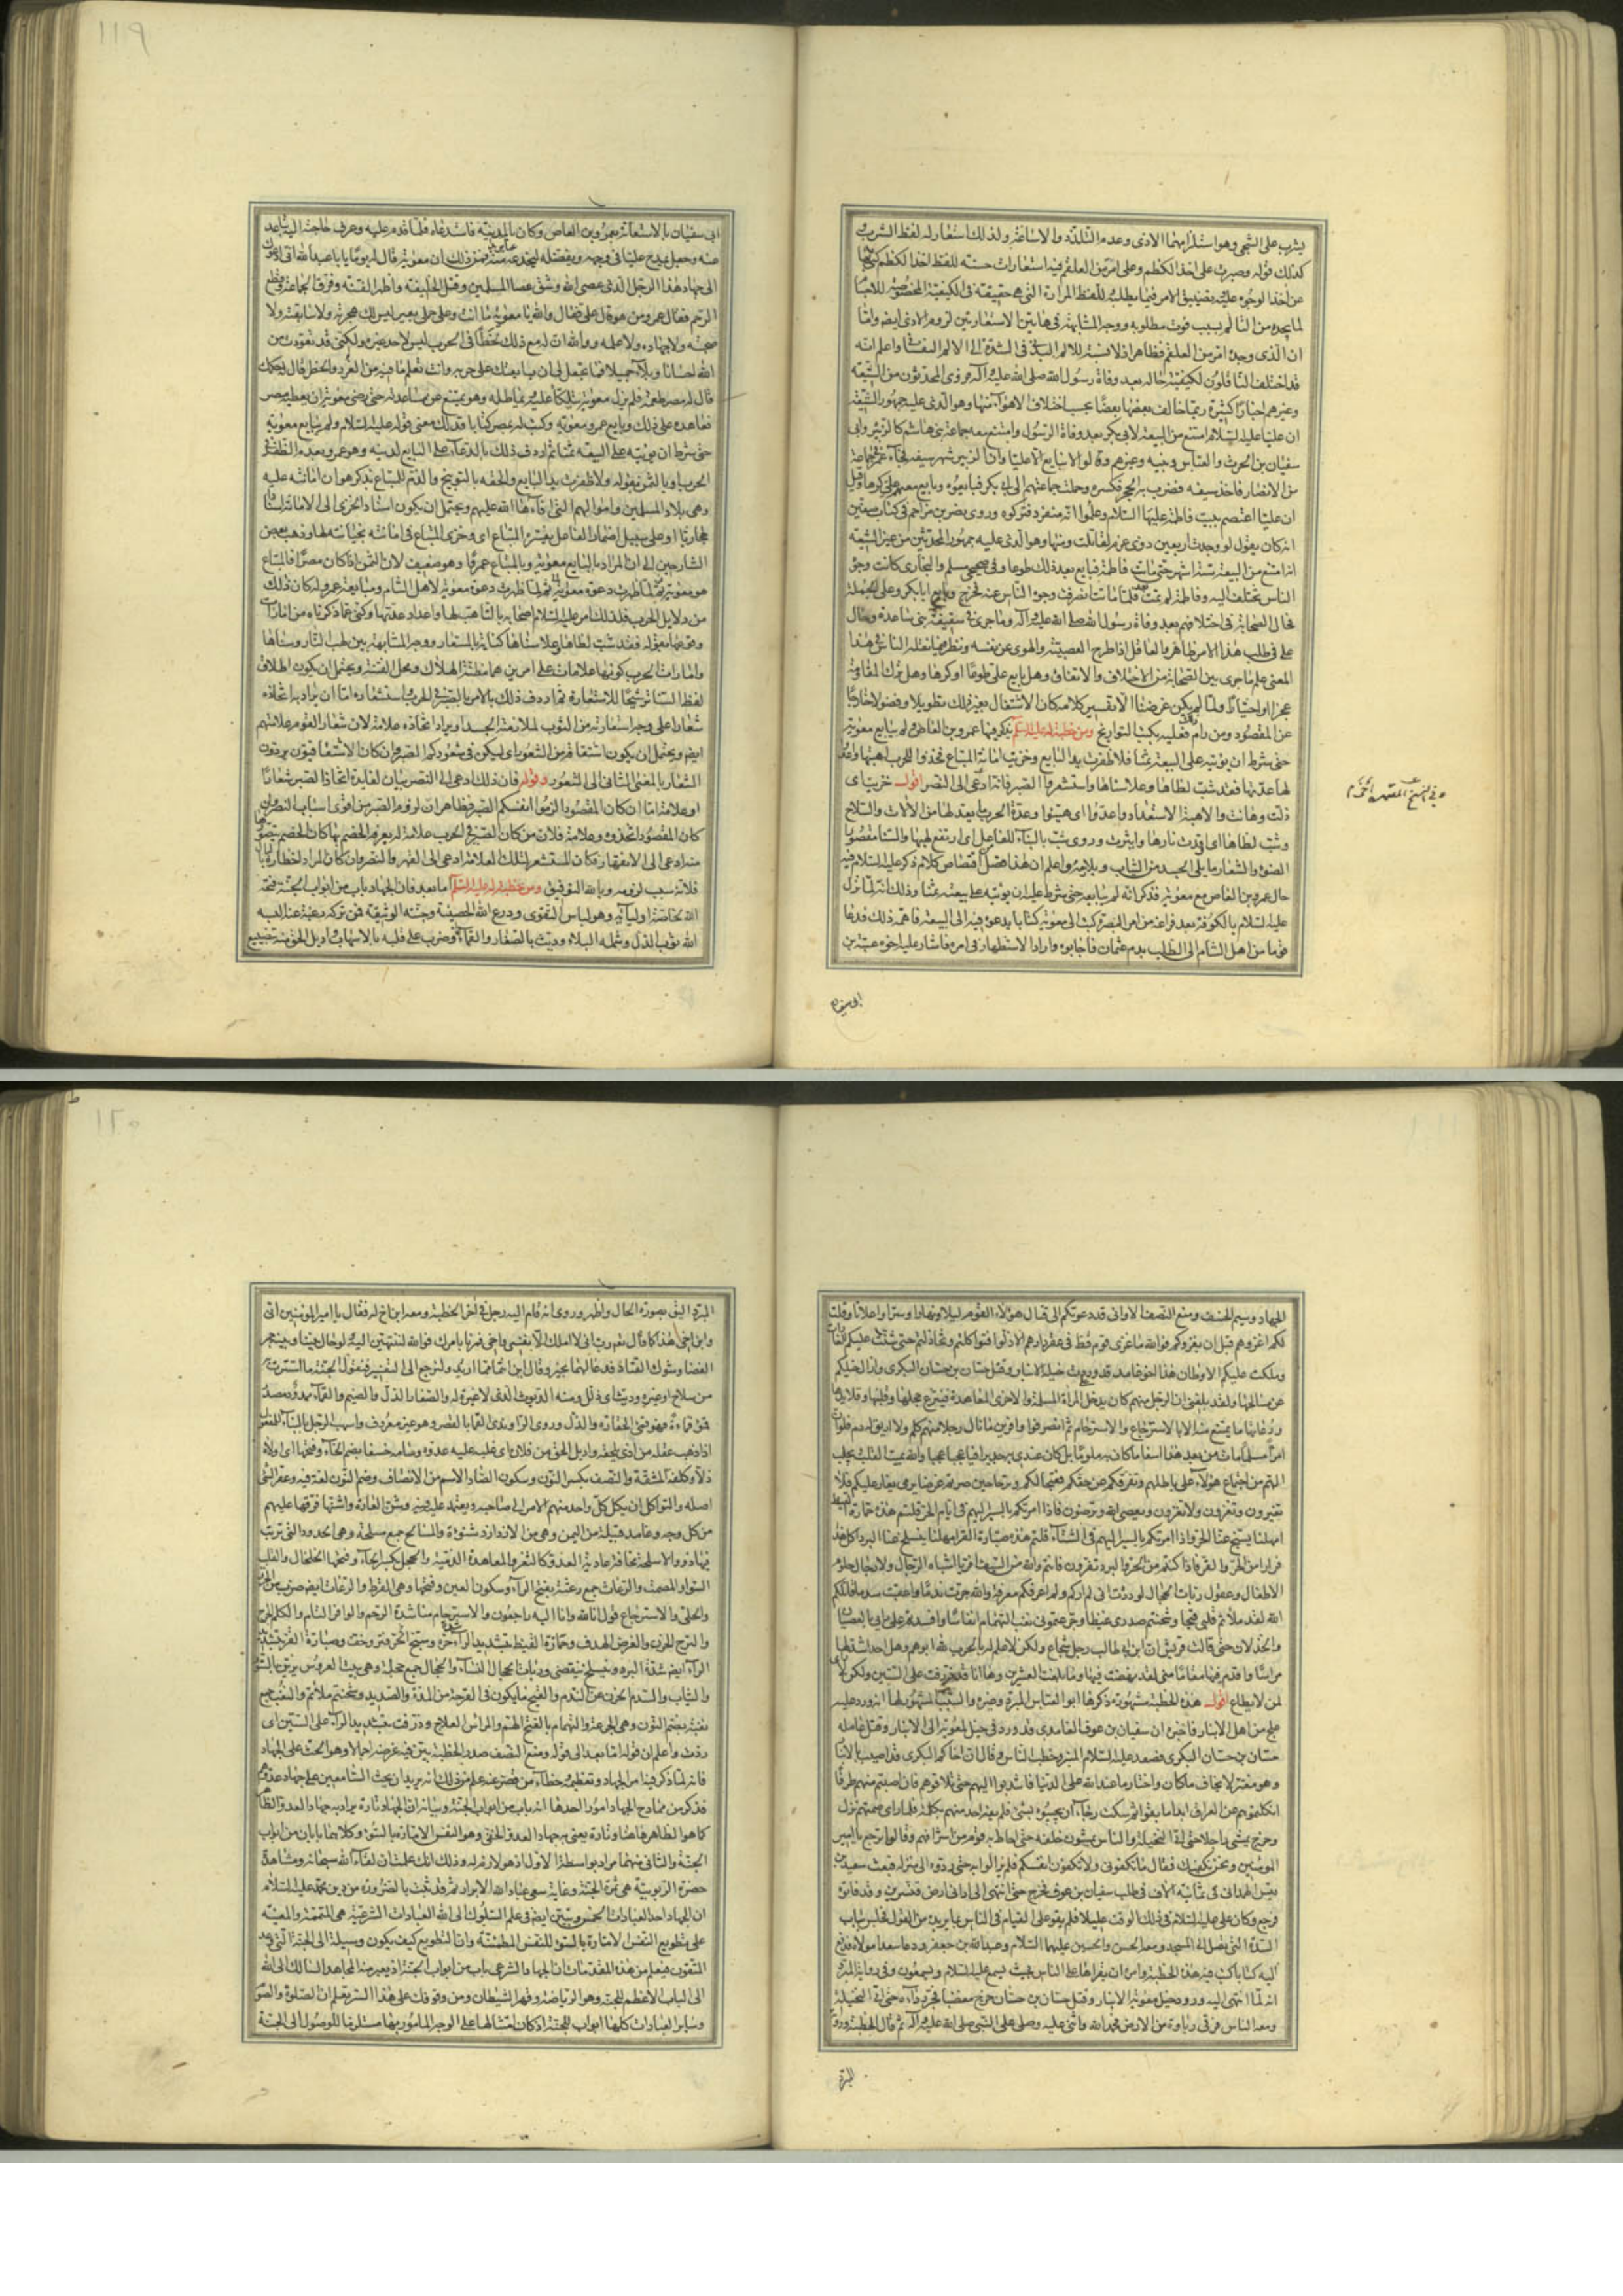 ١١٩
يشرب على الشجى وهو استلزامهما الاذى وعدم التلذذ والاساغة ولذلك استعار له لفظ الشرب
كذلك قوله وصبرت على اخذ الكظم وعلى امر من العلقم فيه استعارات حسنه للفظ اخذ الكظم
عن اخذ الوجوه عليه بتضييق الامر فيما يطلبه للفظ المرارة التى هى حقيقته فى الكيفية المخصوصة
لما يجده من التألم بسبب فوت مطلوبه ووجه المشابهة فى هاتين الاستعارتين لزوم الاذى ايضا واما
ان الذى وجده امر من العلقم فظاهر اذ لا نسبة للالم البدنى فى الشدة الى الالم النفسانى واعلم انه
قد اختلف الناقلون لكيفية حاله بعد وفاة رسول الله صلى الله عليه وآله فروى المحدثون من الشيعة
وغيرهم اخبارا كثيرة ربما خالف بعضها بعضا بحسب اختلاف الاهواء منها وهو الذى عليه جمهور الشيعة
ان عليا عليه السلام امتنع من البيعة لابى بكر بعد وفاة الرسول وامتنع معه جماعة بنى هاشم كالزبير وابى
سفيان بن الحرث والعباس وبنيه وغيرهم وقالوا لا نبايع الا عليا وان الزبير شهر سيفه فجاء عمر فى جماعة
من الانصار فاخذ سيفه فضرب به الحجر فكسره وحملت جماعتهم الى ابى بكر فبايعوه وبايع معهم على كرها وقيل
ان عليا اعتصم ببيت فاطمة عليها السلام وعلموا انه منفرد فتركوه وروى نصر بن مزاحم فى كتاب صفين
انه كان يقول لو وجدت اربعين ذوى عزم لقاتلت ومنها وهو الذى عليه جمهور المحدثين من غير الشيعة
انه امتنع من البيعة ستة اشهر حتى ماتت فاطمة فبايع بعد ذلك طوعا وفى صحيحى مسلم والبخارى كانت وجوه
الناس تختلف اليه وفاطمة لم تمت فلما ماتت انصرفت وجوه الناس عنه فخرج وبايع ابا بكر وعلى الجملة
فحال الصحابة فى اختلافهم بعد وفاة رسول الله صلى الله عليه وآله وما جرى فى سقيفة بنى ساعدة وحال
على فى طلب هذا الامر ظاهر والعاقل اذا طرح العصبية والهوى عن نفسه ونظر فيما نقله الناس فى هذا
المعنى علم ما جرى بين الصحابة من الاختلاف والاتفاق وهل بايع على طوعا او كرها وهل ترك المقاومة
عجزا او اختيارا ولما لم يكن غرضنا الا تفسير كلامه كان الاشتغال بغير ذلك تطويلا وفضولا خارجا
عن المقصود ومن رام ذلك فعليه بكتب التواريخ ومن خطبة له عليه السلام يذكر فيها عمرو بن العاص ولم يبايع معوية
حتى شرط ان يؤتيه على البيعة ثمنا فلا ظفرت يد البايع وخزيت امانة المبتاع فخذوا للحرب اهبتها واعدوا
لها عدتها فقد شب لظاها وعلا سناها واستشعروا الصبر فانه ادعى الى النصر اقول خزيت اى
ذلت وهانت والاهبة الاستعداد واعدوا اى هيئوا وعدة الحرب ما يعد لها من الالات والسلاح
وشب لظاها اى اوقدت نارها واثيرت وروى شب بالبناء للفاعل اى ارتفع لهبها والسنا مقصورا
الضوء والشعار ما يلى الجسد من الثياب ويلازمه واعلم ان هذا فصل اقتصاص كلام ذكر عليه السلام فيه
حال عمرو بن العاص مع معوية فذكر انه لم يبايعه حتى شرط عليه ان يؤتيه على بيعته ثمنا وذلك انه لما نزل
عليه السلام بالكوفة بعد فراغه من امر البصرة كتب الى معوية كتابا يدعوه فيه الى البيعة فاهمه ذلك فدعا
قوما من اهل الشام الى الطلب بدم عثمان فاجابوه واراد الاستظهار فى امره فاشار عليه اخوه عتبة بن
ابى سفيان
ابى سفيان بالاستعانة بعمرو بن العاص وكان بالمدينة فاستدعاه فلما قدم عليه وعرف حاجته اليه تباعد
عنه وجعل يمدح عليا فى وجهه ويفضله ليخدعه فمن ذلك ان معوية قال له يوما يابا عبد الله انى ادعوك
الى جهاد هذا الرجل الذى عصى الله وشق عصا المسلمين وقتل الخليفة واظهر الفتنة وفرق الجماعة وقطع
الرحم فقال عمرو من هو قال على فقال والله يا معوية ما انت وعلى حملى بعير ليس لك هجرته ولا سابقته ولا
صحبته ولا جهاده ولا علمه ووالله ان له مع ذلك لحظا فى الحرب ليس لاحد غيره ولكنى قد تعودت من
الله احسانا وبلاء جميلا فما تجعل لى ان بايعتك على حربه وانت تعلم ما فيه من الغرر والخطر قال لك حكمك
قال له مصر طعمة فلم يزل معوية يتلكأ عليه ويماطله وهو يمتنع عن مساعدته حتى رضى معوية ان يعطيه مصر
فعاهده على ذلك وبايع عمرو معوية وكتب له بمصر كتابا فذلك معنى قوله عليه السلام ولم يبايع معوية
حتى شرط ان يؤتيه على البيعة ثمنا ثم اردف ذلك بالدعاء على البايع لدينه وهو عمرو بعدم الظفر فى
الحرب او بالثمن بقوله ولا ظفرت يد البايع والحقه بالتوبيخ والذم للمبتاع بذكر هوان امانته عليه
وهى بلاد المسلمين واموالهم التى افاءها الله عليهم ويحتمل ان يكون اسناد الخزى الى الامانة اسنادا
مجازيا او على سبيل اضمار الفاعل يفسره المبتاع اى وخزى المبتاع فى امانته بخيانته لها وذهب بعض
الشارحين الى ان المراد بالبايع معوية وبالمبتاع عمرو وهو ضعيف لان الثمن اذا كان مصرا فالمبتاع
هو معوية ثم لما ظهرت دعوة معوية لاهل الشام ومبايعة عمرو له كان ذلك
من دلايل الحرب فلذلك امر عليه السلام اصحابه بالتاهب لها واعداد عدتها وكنى عما ذكرناه من امارات
وقوعها بقوله فقد شب لظاها وعلا سناها كناية بالمستعار ووجه المشابهة بين لهب النار وسناها
وامارات الحرب كونها علامات على امرين هما مظنة الهلاك ومحل الفتنة ويحتمل ان يكون اطلاق
لفظ السنا ترشيحا للاستعارة ثم اردف ذلك بالامر بالصبر فى الحرب استشعاره اما ان يراد به اتخاذه
شعارا على وجه استعارته من الثوب لملازمته الجسد او يراد اتخاذه علامة لان شعار القوم علامتهم
ايضا ويحتمل ان يكون اشتقاقه من الشعور اى ليكن فى شعوركم الصبر وان كان الاشتقاقيون يردون
الشعار بالمعنى الثانى الى الشعور وقوله فان ذلك ادعى الى النصر بيان لفايدة اتخاذ الصبر شعارا
او علامة اما ان كان المقصود الزموا انفسكم الصبر فظاهر ان لزوم الصبر من اقوى اسباب النصر وان
كان المقصود اتخذوه علامة فلان من كان الصبر فى الحرب علامة له يعرفه الخصم بها كان الخصم يتصور
منه ادعى الى الانقهار فكان المستشعر لتلك العلامة ادعى الى القهر والنصر وان كان المراد اخطاره بالبال
فلانه سبب لزومه وبالله التوفيق ومن خطبة له عليه السلام اما بعد فان الجهاد باب من ابواب الجنة فتحه
الله لخاصة اوليائه وهو لباس التقوى ودرع الله الحصينة وجنته الوثيقة فمن تركه رغبة عنه البسه
الله ثوب الذل وشمله البلاء وديث بالصغار والقماءة وضرب على قلبه بالاسهاب واديل الحق منه بتضييع
١٢٠
الجهاد وسيم الخسف ومنع النصف الا وانى قد دعوتكم الى قتال هؤلاء القوم ليلا ونهارا وسرا واعلانا وقلت
لكم اغزوهم قبل ان يغزوكم فوالله ما غزى قوم قط فى عقر دارهم الا ذلوا فتواكلتم وتخاذلتم حتى شنت عليكم الغارات
وملكت عليكم الاوطان هذا اخو غامد قد وردت خيله الانبار وقتل حسان بن حسان البكرى وازال خيلكم
عن مسالحها ولقد بلغنى ان الرجل منهم كان يدخل المراة المسلمة والاخرى المعاهدة فينتزع حجلها وقلبها وقلايدها
ورعاثها ما تمتنع منه الا بالاسترجاع والاسترحام ثم انصرفوا وافرين ما نال رجلا منهم كلم ولا اريق لهم دم فلو ان
امرأ مسلما مات من بعد هذا اسفا ما كان به ملوما بل كان عندى به جديرا فيا عجبا عجبا والله يميت القلب ويجلب
الهم من اجتماع هؤلاء على باطلهم وتفرقكم عن حقكم فقبحا لكم وترحا حين صرتم غرضا يرمى يغار عليكم ولا
تغيرون وتغزون ولا تغزون ويعصى الله وترضون فاذا امرتكم بالسير اليهم فى ايام الحر قلتم هذه حمارة القيظ
امهلنا يسبخ عنا الحر واذا امرتكم بالسير اليهم فى الشتاء قلتم هذه صبارة القر امهلنا ينسلخ عنا البرد كل هذا
فرارا من الحر والقر فاذا كنتم من الحر والبرد تفرون فانتم والله من السيف افر يا اشباه الرجال ولا رجال حلوم
الاطفال وعقول ربات الحجال لوددت انى لم اركم ولم اعرفكم معرفة والله جرت ندما واعقبت سدما قاتلكم
الله لقد ملأتم قلبى قيحا وشحنتم صدرى غيظا وجرعتمونى نغب التهمام انفاسا وافسدتم على رايى بالعصيان
والخذلان حتى قالت قريش ان ابن ابى طالب رجل شجاع ولكن لا علم له بالحرب لله ابوهم وهل احد اشد لها
مراسا واقدم فيها مقاما منى لقد نهضت فيها وما بلغت العشرين وها انا قد ذرفت على الستين ولكن لا راى
لمن لا يطاع اقول هذه الخطبة مشهورة ذكرها ابو العباس المبرد وغيره والسبب المشهور لها انه ورد عليه
علج من اهل الانبار فاخبره ان سفيان بن عوف الغامدى قد ورد فى خيل لمعوية الى الانبار وقتل عامله
حسان بن حسان البكرى فصعد عليه السلام المنبر وخطب الناس وقال ان اخاكم البكرى قد اصيب بالانبار
وهو مغتر لا يخاف ما كان واختار ما عند الله على الدنيا فانتدبوا اليهم حتى تلاقوهم فان اصبتم منهم طرفا
انكلتموهم عن العراق ابدا ما بقوا ثم سكت رجاء ان يجيبوه بشئ فلم يفه احد منهم بكلمة فلما راى صمتهم نزل
وخرج يمشى راجلا حتى اتى النخيلة والناس يمشون خلفه حتى احاط به قوم من اشرافهم وقالوا ترجع يا امير
المومنين ونحن نكفيك فقال ما تكفونى ولا تكفون انفسكم فلم يزالوا به حتى ردوه الى منزله فبعث سعيد بن
قيس الهمدانى فى ثمانية الاف فى طلب سفيان بن عوف فخرج حتى انتهى الى ادانى ارض قنسرين وقد فاتوه
فرجع وكان على عليه السلام فى ذلك الوقت عليلا فلم يقو على القيام فى الناس بما يريده من القول فجلس بباب
السدة التى تصل الى المسجد ومعه الحسن والحسين عليهما السلام وعبد الله بن جعفر ودعا سعدا مولاه فدفع
اليه كتابا كتب فيه هذه الخطبة وامره ان يقراها على الناس بحيث يسمع عليه السلام ويسمعون وفى رواية المبرد
انه لما انتهى اليه ورود خيل معوية الانبار وقتل حسان بن حسان خرج مغضبا يجر رداءه حتى اتى النخيلة
ومعه الناس فرقى رباوة من الارض فحمد الله واثنى عليه وصلى على النبى صلى الله عليه وآله ثم قال الخطبة ورواية
المبرد
المبرد اليق بصورة الحال واظهر وروى انه قام اليه رجل فى اخر الخطبة ومعه ابن اخ له فقال يا امير المومنين انى
وابن اخى هذا كما قال تعالى رب انى لا املك الا نفسى واخى فمرنا بامرك فوالله لننتهين اليه ولو حال بيننا وبينه جمر
الغضا وشوك القتاد فدعا لهما بخير وقال اين انتما مما اريد ولنرجع الى التفسير فنقول الجنة ما استترت به
من سلاح او غيره وديث اى ذلل ومنه الديوث الذى لا غيرة له والصغار الذل والضيم والقماء ممدود مصدر
قمؤ قماءة فهو قمئ الحقارة والذل وروى الراوندى القما بالقصر وهو غير معروف واسهب الرجل بالبناء للمفعول
اذا ذهب عقله من اذى يلحقه واديل الحق من فلان اى غلب عليه عدوه وسامه خسفا بضم الخاء وفتحها اى اولاه
ذلا وكلفه المشقة والنصف بكسر النون وسكون الصاد الاسم من الانصاف وضم النون لغة فيه وعقر الشئ
اصله والتواكل ان يكل كل واحد منهم الامر الى صاحبه ويعتمد عليه فيه وشن الغارة واشنها فرقها عليهم
من كل وجه وغامد قبيلة من اليمن وهى من الازد ازد شنوءة والمسالح جمع مسلحة وهى الحدود التى ترتب
فيها ذوو الاسلحة مخافة عادية العدو كالثغر والمعاهدة الذمية والحجل بكسر الحاء وفتحها الخلخال والقلب
السوار المصمت والرعاث جمع رعثة بفتح الراء وسكون العين وفتحها وهى القرط والرعاث ايضا ضرب من الخرز
والحلى والاسترجاع قول انا لله وانا اليه راجعون والاسترحام مناشدة الرحم والوافر التام والكلم الجرح
والترح الحزن والغرض الهدف وحمارة القيظ بتشديد الراء شدة حره وسبخ الحر فتر وخف وصبارة القر بتشديد
الراء ايضا شدة البرد وينسلخ ينقضى وربات الحجال النساء والحجال جمع حجلة وهى بيت العروس يزين بالستور
والثياب والسدم الحزن عن الندم والقيح ما يكون فى القرحة من المدة والصديد وشحنتم ملأتم والنغب جمع
نغبة بضم النون وهى الجرعة والتهمام بالفتح الهم والمراس العلاج وذرفت بتشديد الراء على الستين اى
زدت واعلم ان قوله اما بعد الى قوله ومنع النصف صدر الخطبة بين فيه غرضه اجمالا وهو الحث على الجهاد
فانه لما ذكر فيه امر الجهاد وتعظيمه وخطأ من قصر عنه علم من ذلك انه يريد ان يحث السامعين على جهاد عدوهم
فذكر من ممادح الجهاد امورا احدها انه باب من ابواب الجنة وبيانه ان الجهاد تارة يراد به جهاد العدو الظاهر
كما هو الظاهر هاهنا وتارة يعنى به جهاد العدو الخفى وهو النفس الامارة بالسوء وكلاهما بابان من ابواب
الجنة والثانى منهما مراد بواسطة الاول اذ هو لازم له وذلك انك علمت ان لقاء الله سبحانه ومشاهدة
حضرة الربوبية هى ثمرة الخلقة وغاية سعى عباد الله الابرار ثم قد ثبت بالضرورة من دين محمد عليه السلام
ان الجهاد احد العبادات الخمس وتبين ايضا فى علم السلوك الى الله ان العبادات الشرعية هى المتممة والمعينة
على تطويع النفس الامارة بالسوء للنفس المطمئنة وان التطويع كيف يكون وسيلة الى الجنة التى وعد
المتقون فيعلم من هذه المقدمات ان الجهاد الشرعى باب من ابواب الجنة اذ يعبر منه المجاهد السالك الى الله
الى الباب الاعظم للجنة وهو الرياضة وقهر الشيطان ومن وقوفك على هذا السر تعلم ان الصلوة والصوم
وساير العبادات كلها ابواب للجنة اذ كان امتثالها على الوجه المامور بها مستلزما للوصول الى الجنة